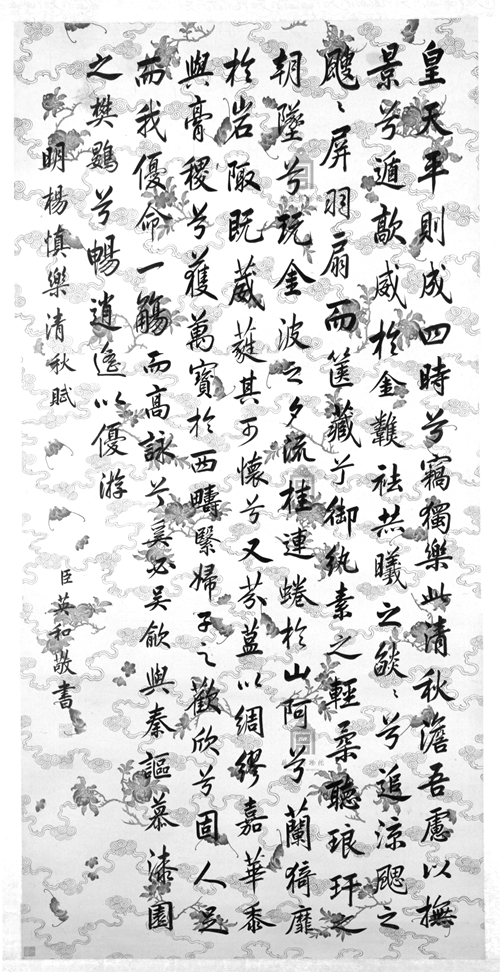 皇天平則成四時兮竊獨樂此清秋澹吾慮以撫
景兮遁歊威於金鞿祛曦之燄〻兮追涼颸之
飂〻屏羽扇而篋藏兮御紈素之輕柔聽琅玕之
朝墜兮玩金波之夕流桂連蜷於山阿兮蘭猗靡
於岩陬既葳蕤其可懷兮又芬葐以綢繆嘉華黍
與膏稷兮獲萬寶於西疇繄婦子之歡欣兮固人足
而我優命一觴而高詠兮奚必吳歈與秦謳慕漆園
之樊鷃兮暢逍遙以優游
明楊慎樂清秋賦
臣英和敬書